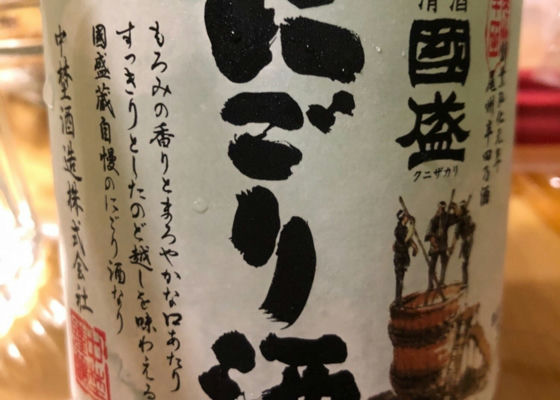 清酒
國盛
クニザカリ
尾州半田乃酒
にごり酒
もろみの香りとまろやかな口あたり
すっきりとしたのど越しを味わえる
國盛蔵自慢のにごり酒なり
中埜酒造株式会社